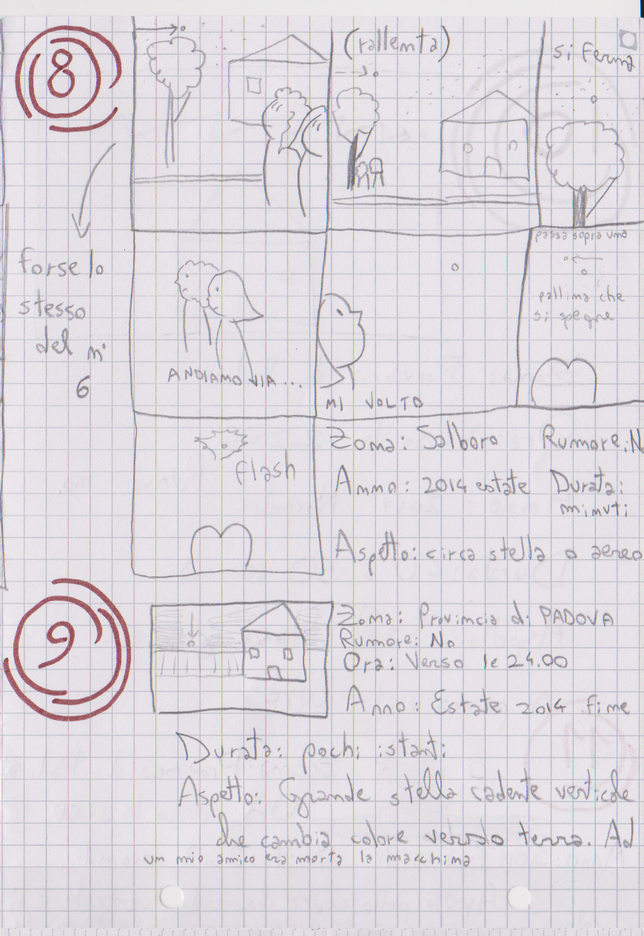 8
(rallenta)
si ferma
forse lo
stesso
del n°
6
ANDIAMO VIA...
MI VOLTO
passa sopra una
pallina che
si spegne
flash
Zona: Salboro Rumore: N
Anno: 2014 estate Durata:
minuti
Aspetto: circa stella o aereo
9
Zona: Provincia di PADOVA
Rumore: No
Ora: Verso le 24.00
Anno: Estate 2014 fine
Durata: pochi istanti
Aspetto: Grande stella cadente verticale
che cambia colore verso terra. Ad
un mio amico era morta la macchina